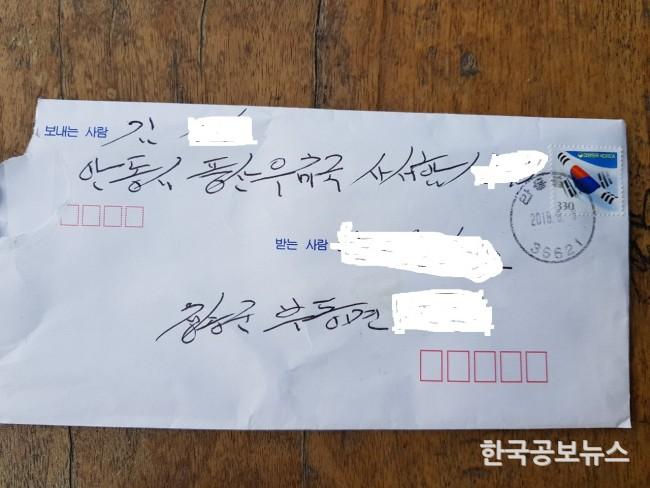 보내는 사람 김
안동시 풍산우체국 사서함
대한민국 KOREA
330
안동
2018.
36621
받는 사람
청송군 부동면
한국공보뉴스